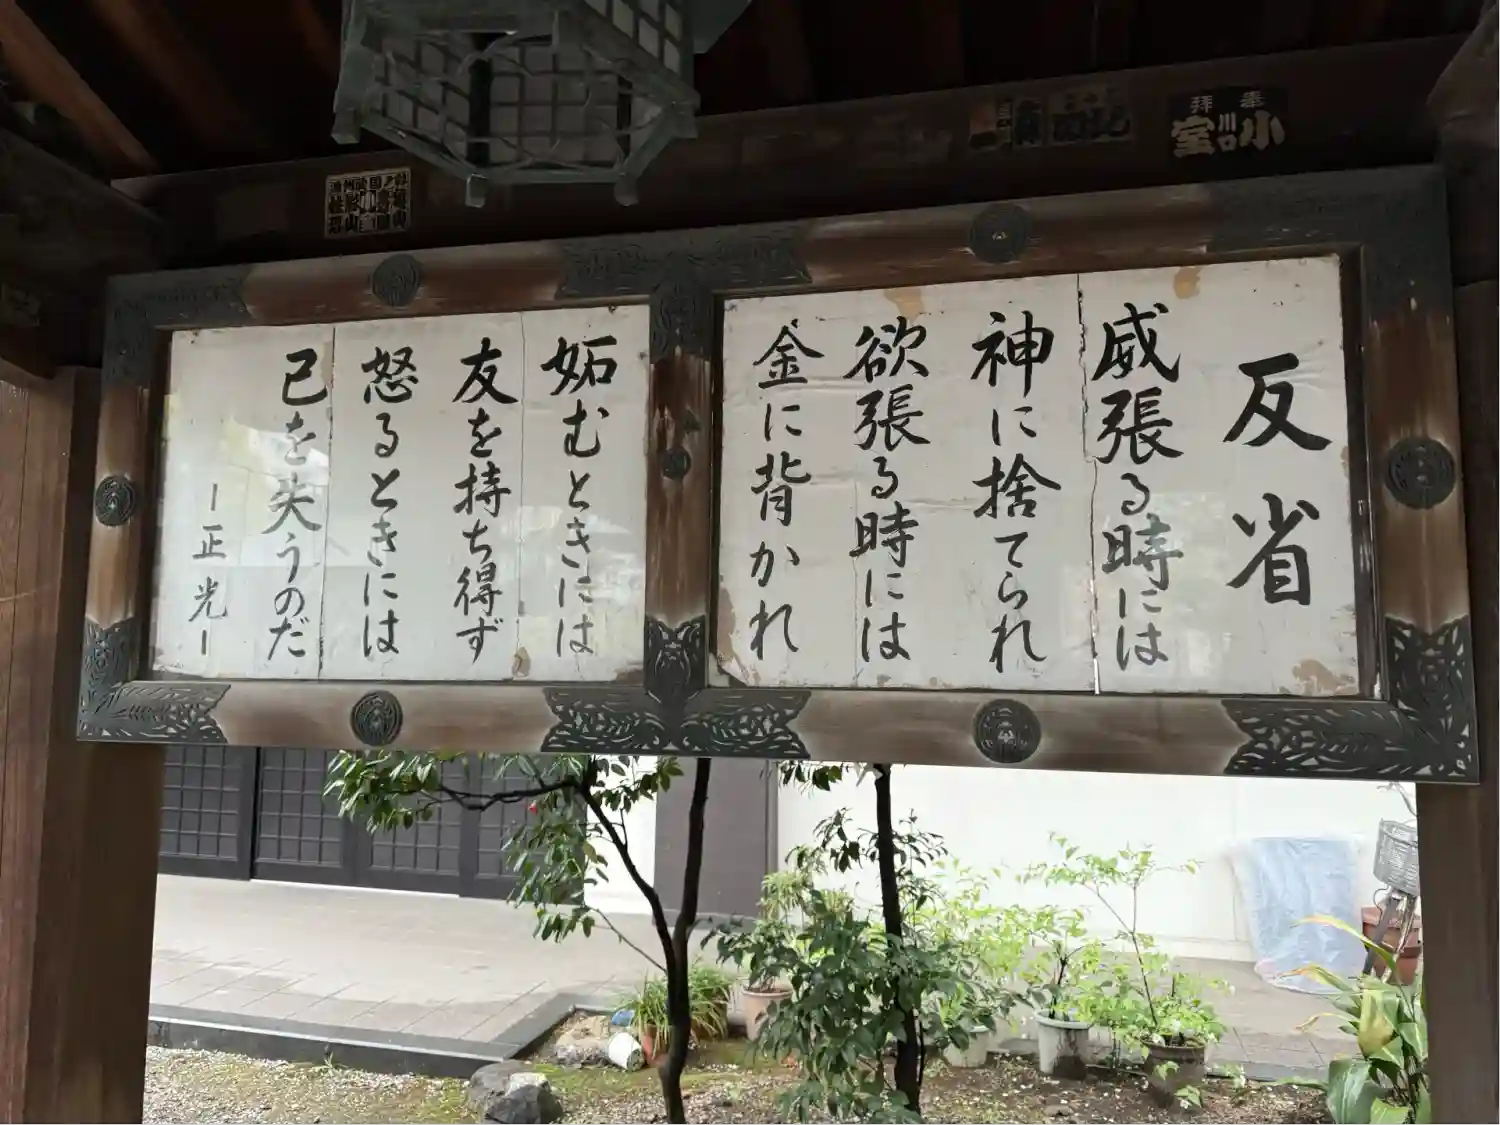 反省
威張る時には
神に捨てられ
欲張る時には
金に背かれ
妬むときには
友を持ち得ず
怒るときには
己を失うのだ
ー正光ー
奉拝
小川宝